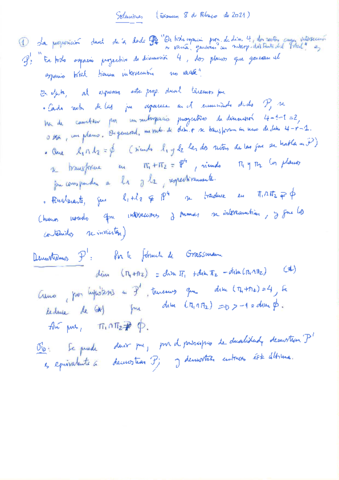 Soluciones (Examen 8 de Febrero de 2021)
① La proposición dual de la dada P "En todo espacio proy. de dim. 4, dos rectas cuya intersección
es vacía, generan un subesp. distinto del total" es
P': "En todo espacio proyectivo de dimensión 4, dos planos que generan el
espacio total tienen intersección no vacía".
En efecto, al expresar esta prop. dual tenemos que
• Cada recta de las que aparecen en el enunciado de P, se
ha de cambiar por un subespacio proyectivo de dimensión 4-1-1=2,
o sea, un plano. En general, un subesp. de dim r se transforma en uno de dim 4-r-1.
• Que l₁∩l₂=∅ (siendo l₁ y l₂ las dos rectas de las que se habla en P)
se transforma en π₁+π₂ = P⁴, siendo π₁ y π₂ los planos
que corresponden a l₁ y l₂, respectivamente.
• Finalmente, que l₁+l₂ ⊊ P⁴ se traduce en π₁∩π₂ ⊋ ∅
(hemos usado que intersecciones y sumas se intercambian, y que los
contenidos se invierten)
Demostremos P': Por la fórmula de Grassmann
dim (π₁+π₂) = dim π₁ + dim π₂ - dim (π₁∩π₂) (*)
Como, por hipótesis en P', tenemos que dim (π₁+π₂)=4, se
deduce de (*) que dim (π₁∩π₂)=0 > -1 = dim ∅.
Así pues, π₁∩π₂ ⊋ ∅.
Se puede decir que, por el principio de dualidad, demostrar P'
es equivalente a demostrar P, y demostrar entonces esta última.